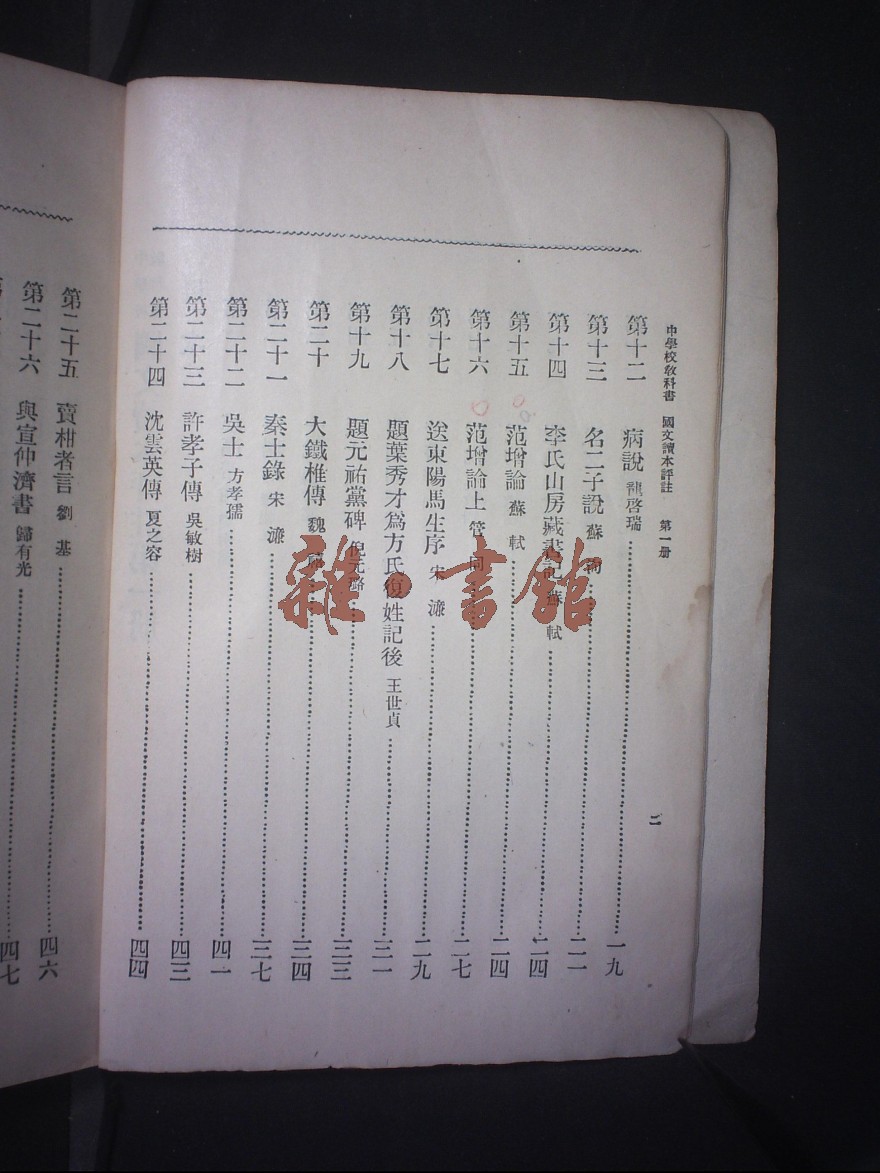 中學校敎科書　國文讀本評註　第一册
二
第十二　病說　龍啓瑞　一九
第十三　名二子說　蘇洵　二一
第十四　李氏山房藏書記　蘇軾　二四
第十五　范增論　蘇軾　二四
第十六　范增論上　管同　二七
第十七　送東陽馬生序　宋濂　二九
第十八　題葉秀才爲方氏復姓記後　王世貞　三一
第十九　題元祐黨碑　倪元璐　三三
第二十　大鐵椎傳　魏　三四
第二十一　秦士錄　宋濂　三七
第二十二　吳士　方孝孺　四一
第二十三　許孝子傳　吳敏樹　四三
第二十四　沈雲英傳　夏之容　四四
第二十五　賣柑者言　劉基　四六
第二十六　與宣仲濟書　歸有光　四七
雜·書館